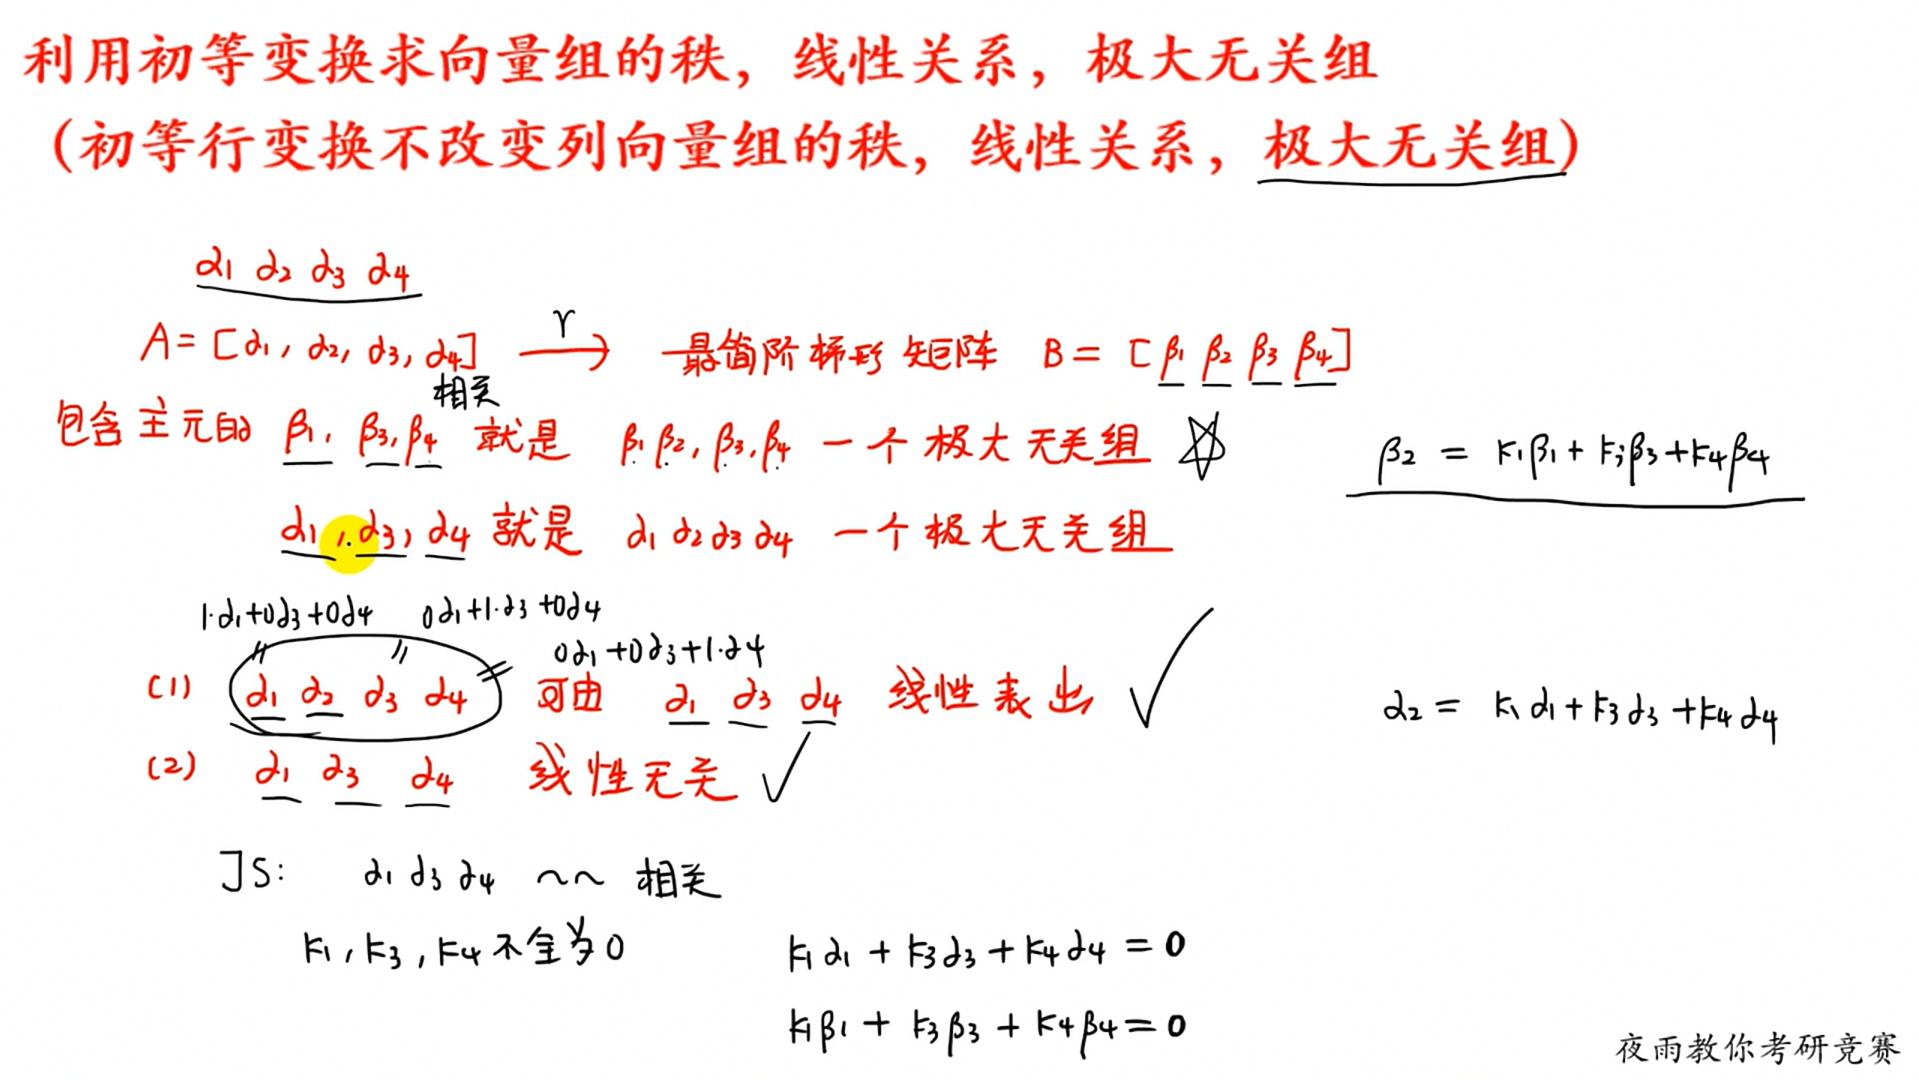 利用初等变换求向量组的秩，线性关系，极大无关组
（初等行变换不改变列向量组的秩，线性关系，极大无关组）
α1 α2 α3 α4
A = [α1, α2, α3, α4] r→ 最简阶梯形矩阵 B = [β1 β2 β3 β4]
相关
包含主元的 β1, β3, β4 就是 β1 β2, β3, β4 一个极大无关组 ☆
β2 = k1β1 + k3β3 + k4β4
α1, α3, α4 就是 α1 α2 α3 α4 一个极大无关组
1·α1+0α3+0α4 0α1+1·α3+0α4
0α1+0α3+1·α4
(1) α1 α2 α3 α4 可由 α1 α3 α4 线性表出 ✓
α2 = k1α1 + k3α3 + k4α4
(2) α1 α3 α4 线性无关 ✓
JS: α1 α3 α4 ~~ 相关
k1, k3, k4 不全为0 k1α1 + k3α3 + k4α4 = 0
k1β1 + k3β3 + k4β4 = 0
夜雨教你考研竞赛